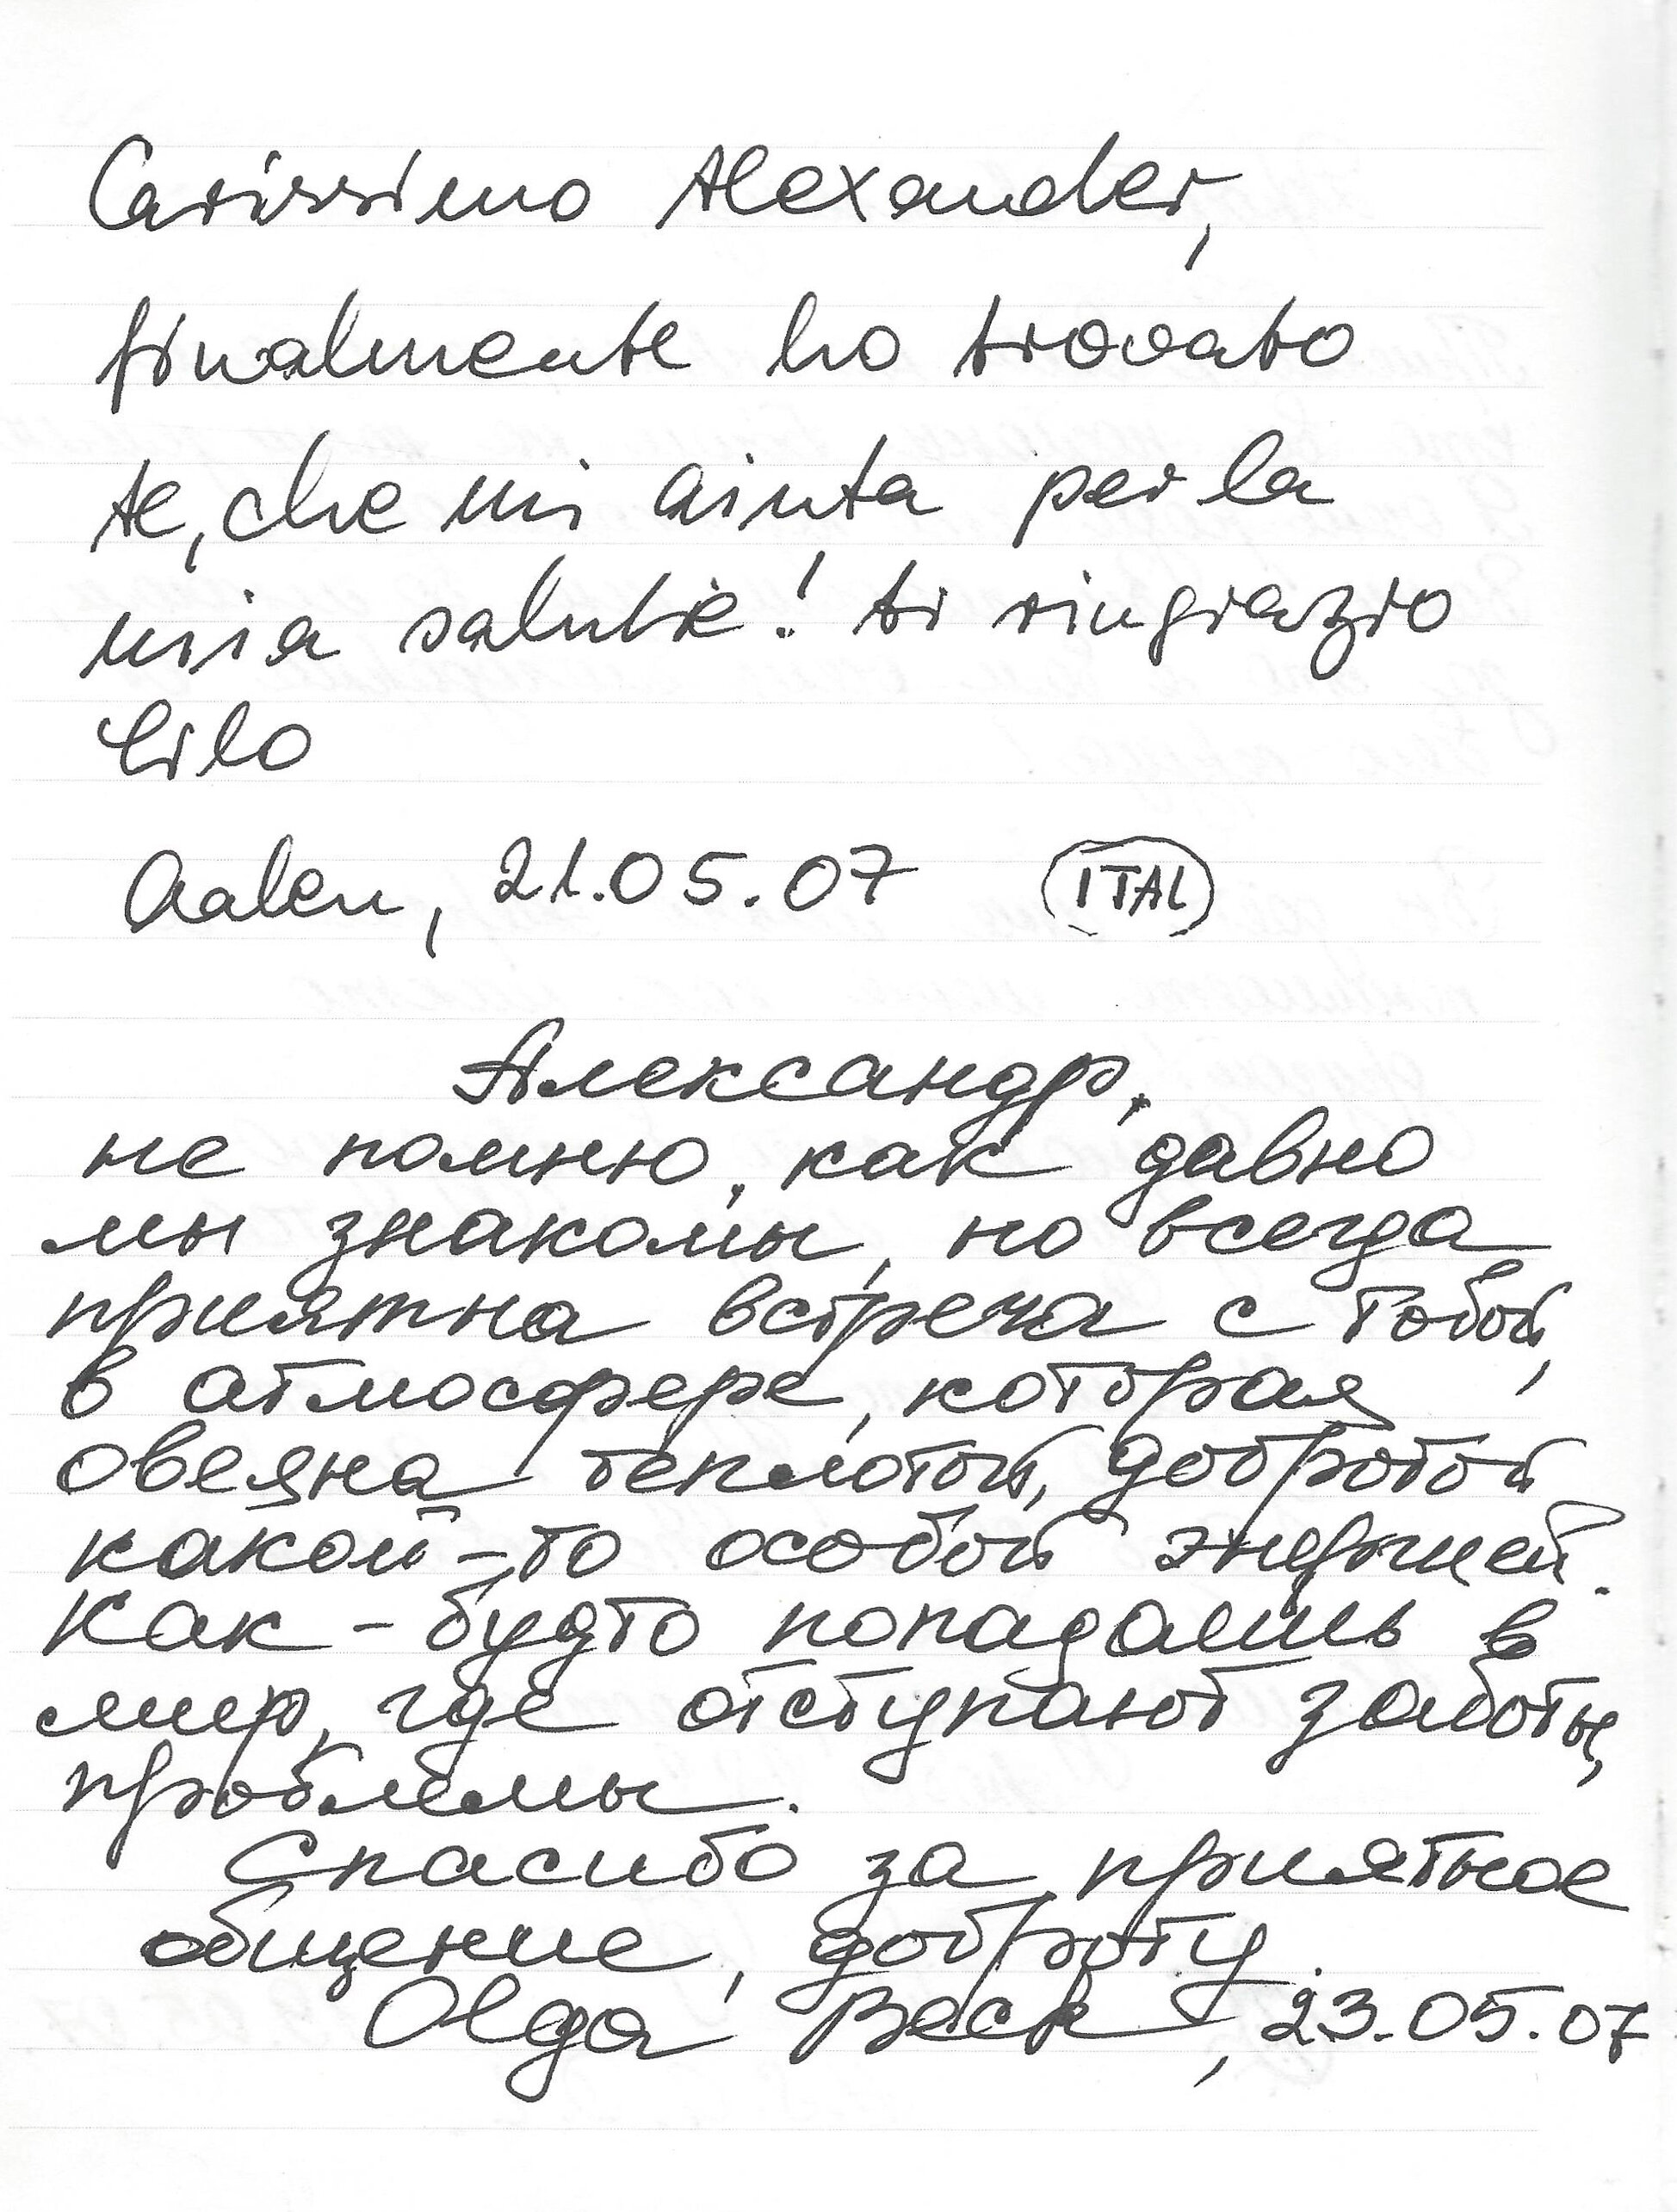 Carissimo Alexander,
finalmente ho trovato
te, che mi aiuta per la
mia salute! ti ringrazio
Lilo
Aalen, 21.05.07 ITAL
Александр,
не помню, как давно
мы знакомы, но всегда
приятна встреча с тобой,
в атмосфере, которая
овеяна теплотой, добротой
какой-то особой энергией.
Как-будто попадаешь в
мир, где отступают заботы,
проблемы.
Спасибо за приятное
общение, доброту.
Olga Beck, 23.05.07